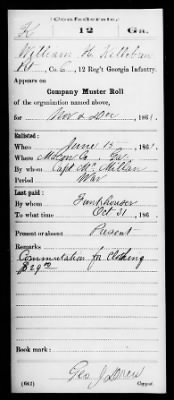 (Confederate.)
K 12 Ga.
William H.
Pvt Co. 12 Reg't Georgia Infantry.
Appears on
Company Muster Roll
of the organization named above,
for Nov & Dec , 1861.
Enlisted:
When June 15 , 1861.
Where Macon Co. Ga.
By whom Capt McMillan
Period War
Last paid:
By whom Funkhouser
To what time Oct 31 , 186
Present or absent Present
Remarks:
Commutation for Clothing
Book mark:
(642) Geo. J. Copyist.